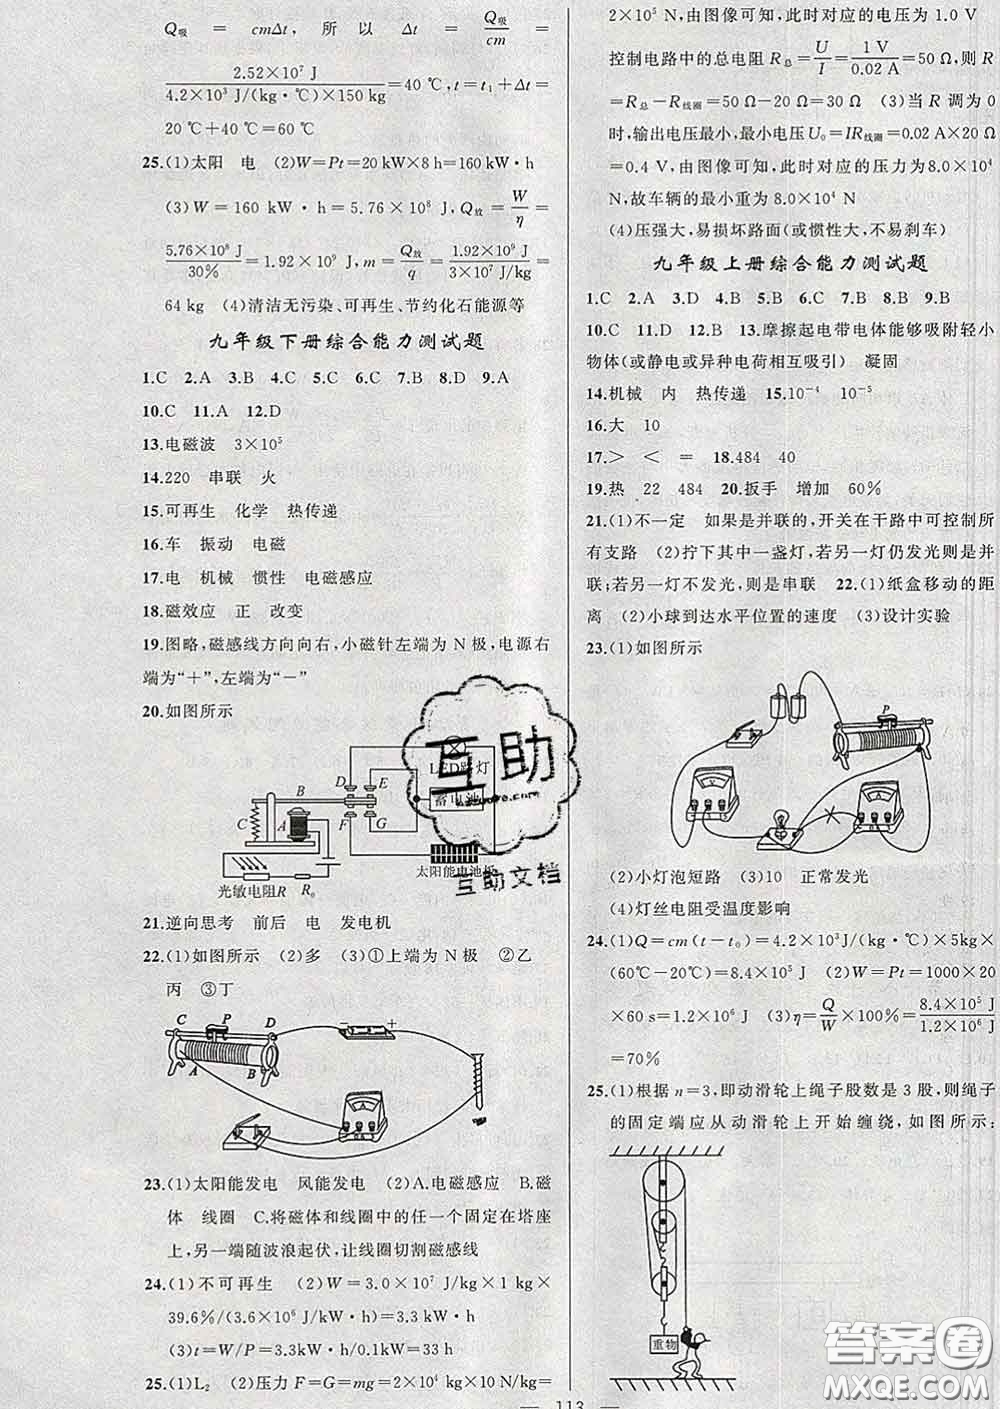 Q吸 = cmΔt, 所以 Δt = Q吸/cm =
2.52×10⁷ J/4.2×10³ J/(kg·℃)×150 kg=40 ℃,t=t₁+Δt=
20 ℃+40 ℃=60 ℃
25.(1)太阳 电 (2)W=Pt=20 kW×8 h=160 kW·h
(3)W=160 kW·h=5.76×10⁸ J,Q放=W/η=
5.76×10⁸ J/30%=1.92×10⁹ J,m=Q放/q=1.92×10⁹ J/3×10⁷ J/kg=
64 kg (4)清洁无污染、可再生、节约化石能源等
九年级下册综合能力测试题
1.C 2.A 3.B 4.C 5.C 6.C 7.B 8.D 9.A
10.C 11.A 12.D
13.电磁波 3×10⁵
14.220 串联 火
15.可再生 化学 热传递
16.车 振动 电磁
17.电 机械 惯性 电磁感应
18.磁效应 正 改变
19.图略,磁感线方向向右,小磁针左端为N极,电源右
端为“+”,左端为“-”
20.如图所示
LED路灯
D E
B
蓄电池
C A
F G
太阳能电池板
光敏电阻R R₀
21.逆向思考 前后 电 发电机
22.(1)如图所示 (2)多 (3)①上端为N极 ②乙
丙 ③丁
C P D
- +
A B
23.(1)太阳能发电 风能发电 (2)A.电磁感应 B.磁
体 线圈 C.将磁体和线圈中的任一个固定在塔座
上,另一端随波浪起伏,让线圈切割磁感线
24.(1)不可再生 (2)W=3.0×10⁷ J/kg×1 kg×
39.6%/(3.6×10⁶ J/kW·h)=3.3 kW·h
(3)t=W/P=3.3kW·h/0.1kW=33 h
25.(1)L₂ (2)压力F=G=mg=2×10⁴ kg×10 N/kg=
2×10⁵ N,由图像可知,此时对应的电压为1.0 V
控制电路中的总电阻R总=U/I=1 V/0.02 A=50 Ω,则R
=R总-R线圈=50 Ω-20 Ω=30 Ω (3)当R调为0
时,输出电压最小,最小电压U₀=IR线圈=0.02 A×20 Ω
=0.4 V,由图像可知,此时对应的压力为8.0×10⁴
N,故车辆的最小重为8.0×10⁴ N
(4)压强大,易损坏路面(或惯性大,不易刹车)
九年级上册综合能力测试题
1.C 2.A 3.D 4.B 5.B 6.C 7.D 8.B 9.B
10.C 11.D 12.B 13.摩擦起电带电体能够吸附轻小
物体(或静电或异种电荷相互吸引) 凝固
14.机械 内 热传递 15.10⁻⁴ 10⁻⁵
16.大 10
17.> < = 18.484 40
19.热 22 484 20.扳手 增加 60%
21.(1)不一定 如果是并联的,开关在干路中可控制所
有支路 (2)拧下其中一盏灯,若另一灯仍发光则是并
联;若另一灯不发光,则是串联 22.(1)纸盒移动的距
离 (2)小球到达水平位置的速度 (3)设计实验
23.(1)如图所示
P
(2)小灯泡短路 (3)10 正常发光
(4)灯丝电阻受温度影响
24.(1)Q=cm(t-t₀)=4.2×10³J/(kg·℃)×5kg×
(60℃-20℃)=8.4×10⁵ J (2)W=Pt=1000×20
×60 s=1.2×10⁶ J (3)η=Q/W×100%=8.4×10⁵ J/1.2×10⁶ J
=70%
25.(1)根据n=3,即动滑轮上绳子股数是3股,则绳子
的固定端应从动滑轮上开始缠绕,如图所示:
重物
— 113 —
互助
互助文档
答案圈
MXQE.COM